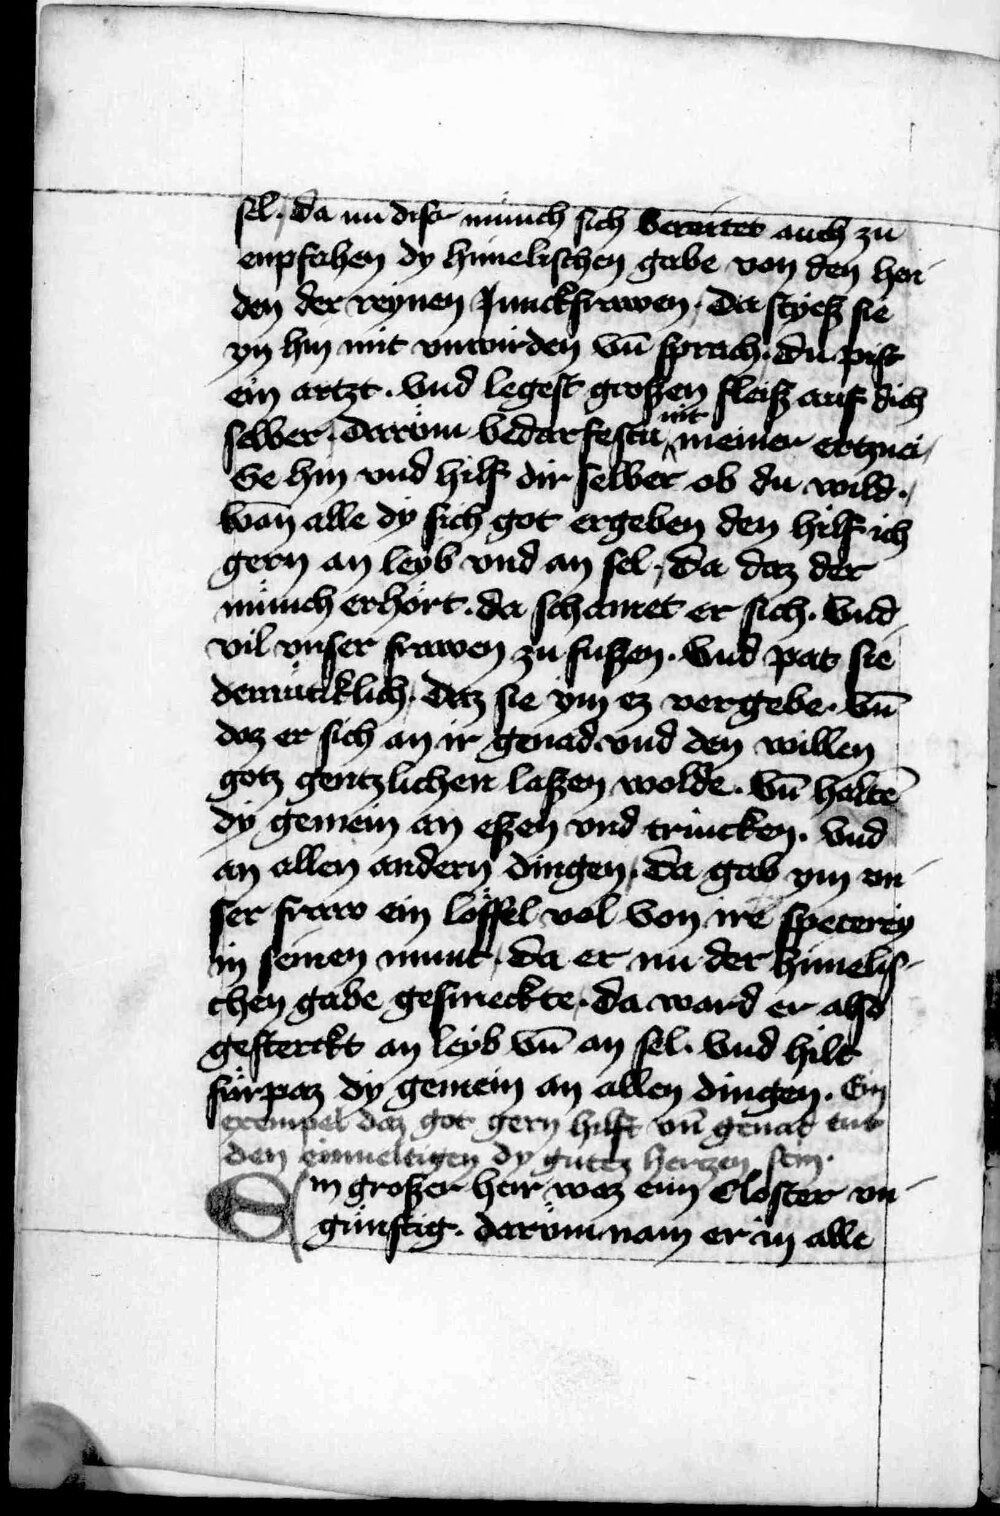 sel. da nu diser münch sich bereitet auch zu
enpfahen dy himelischen gabe von den hen
den der reynen Junckfrawen. Da styesz sie
yn hin mit vnwirden vn̄ sprach. du pist
ein artzt. vnd legest groszen fleisz auf dich
selber. daröm bedarfestu nit meiner ertznei
Ge hin vnd hilf dir selber ob du wild.
wan̄ alle dy sich got ergeben den hilf ich
gern an leyb vnd an sel. Da daz der
münch erhört. da schamet er sich. vnd
vil vnser frawen zu fuszen. vnd pat sie
demütiklich. daz sie ym ez vergebe. vn̄
daz er sich an ir genad vnd den willen
gotz gentzlichen laszen wolde. vn̄ haltē
dy gemein an eszen vnd trincken. vnd
an allen andern dingen. Da gab ym vn
ser fraw ein löffel vol von irē specerey
in seinen munt. da er nu der himelis
chen gabe gesmeckte. da ward er also
gesterckt an leyb vn̄ an sel. vnd hilt
fürpaz dy gemein an allen dingen. Ein
exempel daz got gern hilft vn̄ genad tut
den einueltigen dy gutez herczen sein.
Ein groszer herr waz eim Closter vn
günstig. daröm nam er in alle